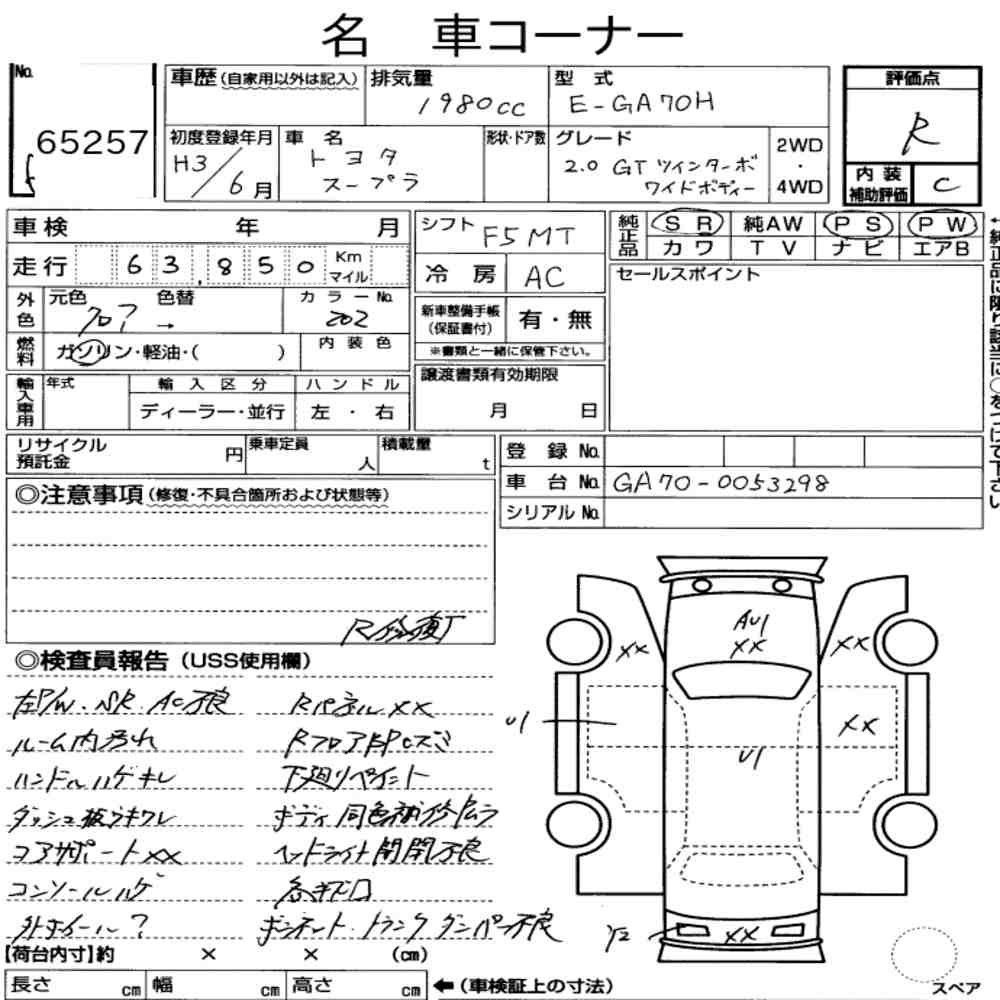 名 車コーナー
No.
65257
車歴(自家用以外は記入)
排気量
1980cc
型 式
E-GA70H
評価点
R
内 装
補助評価
C
初度登録年月
H3/6月
車 名
トヨタ
スープラ
形状・ドア数
グレード
2.0 GT ツインターボ
ワイドボディー
2WD
・
4WD
車検 年 月
走行 63,850 Km
マイル
外色
元色 色替
クロ? →
カラーNo.
202
燃料
ガソリン・軽油・( )
内 装 色
輸入車用
年式
輸 入 区 分
ディーラー・並行
ハ ン ド ル
左 ・ 右
シフト F5MT
冷 房 AC
新車整備手帳
(保証書付)
有・無
※書類と一緒に保管下さい。
譲渡書類有効期限
月 日
純正品
SR 純AW PS PW
カワ TV ナビ エアB
セールスポイント
←純正品に限り該当に○をつけて下さい
リサイクル
預託金
円
乗車定員
人
積載量
t
登 録 No.
車 台 No. GA70-0053298
シリアル No.
◎注意事項(修復・不具合箇所および状態等)
◎検査員報告(USS使用欄)
左P/W、SR AC不良
ルーム内汚れ
ハンドルハゲキレ
コアサポートXX
コンソールハゲ
外ホイール?
RパネルXX
下廻りペイント
ボディ同色補修ムラ
ヘッドライト開閉不良
ボンネット、トランクダンパー不良
AU1
XX
XX
XX
U1
XX
U1
Y2
XX
【荷台内寸】約 × × (cm)
長さ cm 幅 cm 高さ cm ←(車検証上の寸法)
スペア